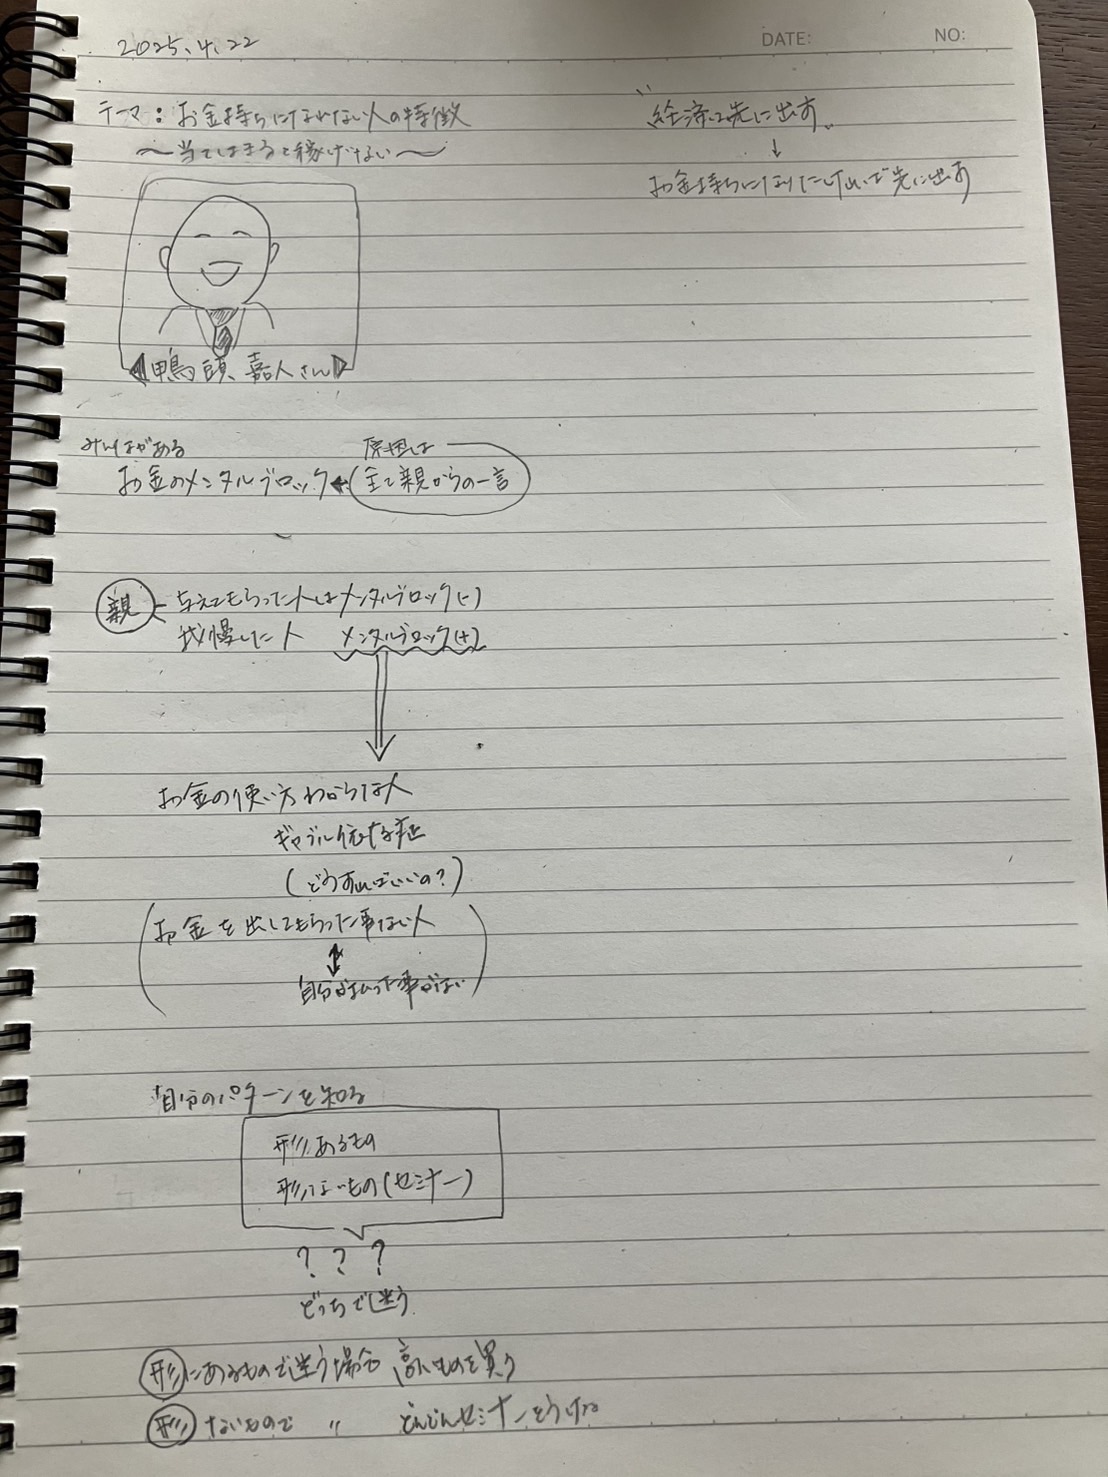 2025.4.22
DATE:
NO:
テーマ：お金持ちになれない人の特徴
〜当てはまると稼げない〜
"経済は先に出す"
↓
お金持ちになりたければ先に出す
鴨頭 嘉人さん
みんながある
お金のメンタルブロック
原因は
全て親からの一言
親
与えてもらった人はメンタルブロック(-)
我慢した人 メンタルブロック(+)
お金の使い方わからな人
ギャブル依存症
(どうすればいいの？)
お金を出してもらった事ない人
自分が払った事がない
自分のパターンを知る
形あるもの
形ないもの(セミナー)
? ? ?
どっちで迷う
形にあるもので迷う場合 高いものを買う
形ないもので 〃 どんどんセミナーをうける